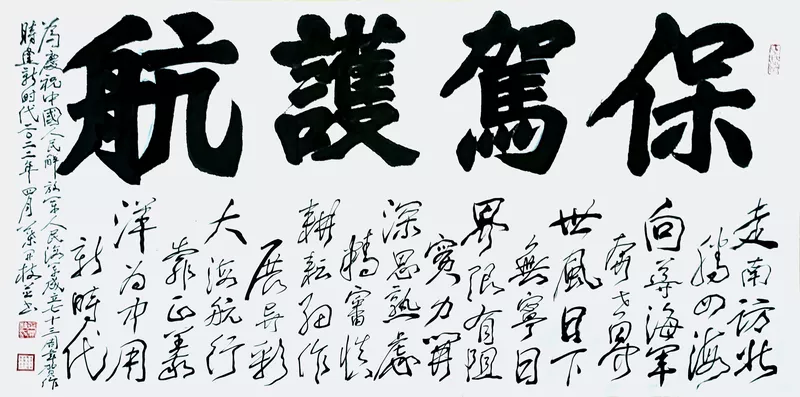 保駕護航
走南訪北
四海
向海軍
奔
世風日下
無寧日
界限有阻
實力開
深思熟慮
精審慎
耕耘細作
展异彩
大海航行
靠正義
洋為中用
新時代
為慶祝中國人民解放軍人民海軍成立七十三周年賀作
新时代二〇二二年四月